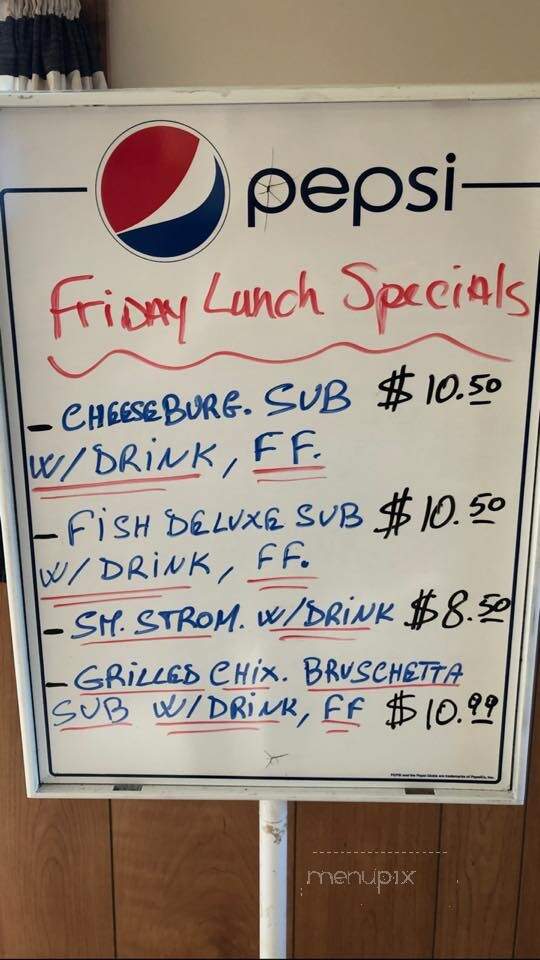 pepsi
Friday Lunch Specials
- CHEESEBURG. SUB $10.50
W/DRINK, FF.
- FISH DELUXE SUB $10.50
W/DRINK, FF.
- SM. STROM. W/DRINK $8.50
- GRILLED CHIX. BRUSCHETTA
SUB W/DRINK, FF $10.99
PEPSI and the Pepsi Globe are trademarks of PepsiCo, Inc.
menupix